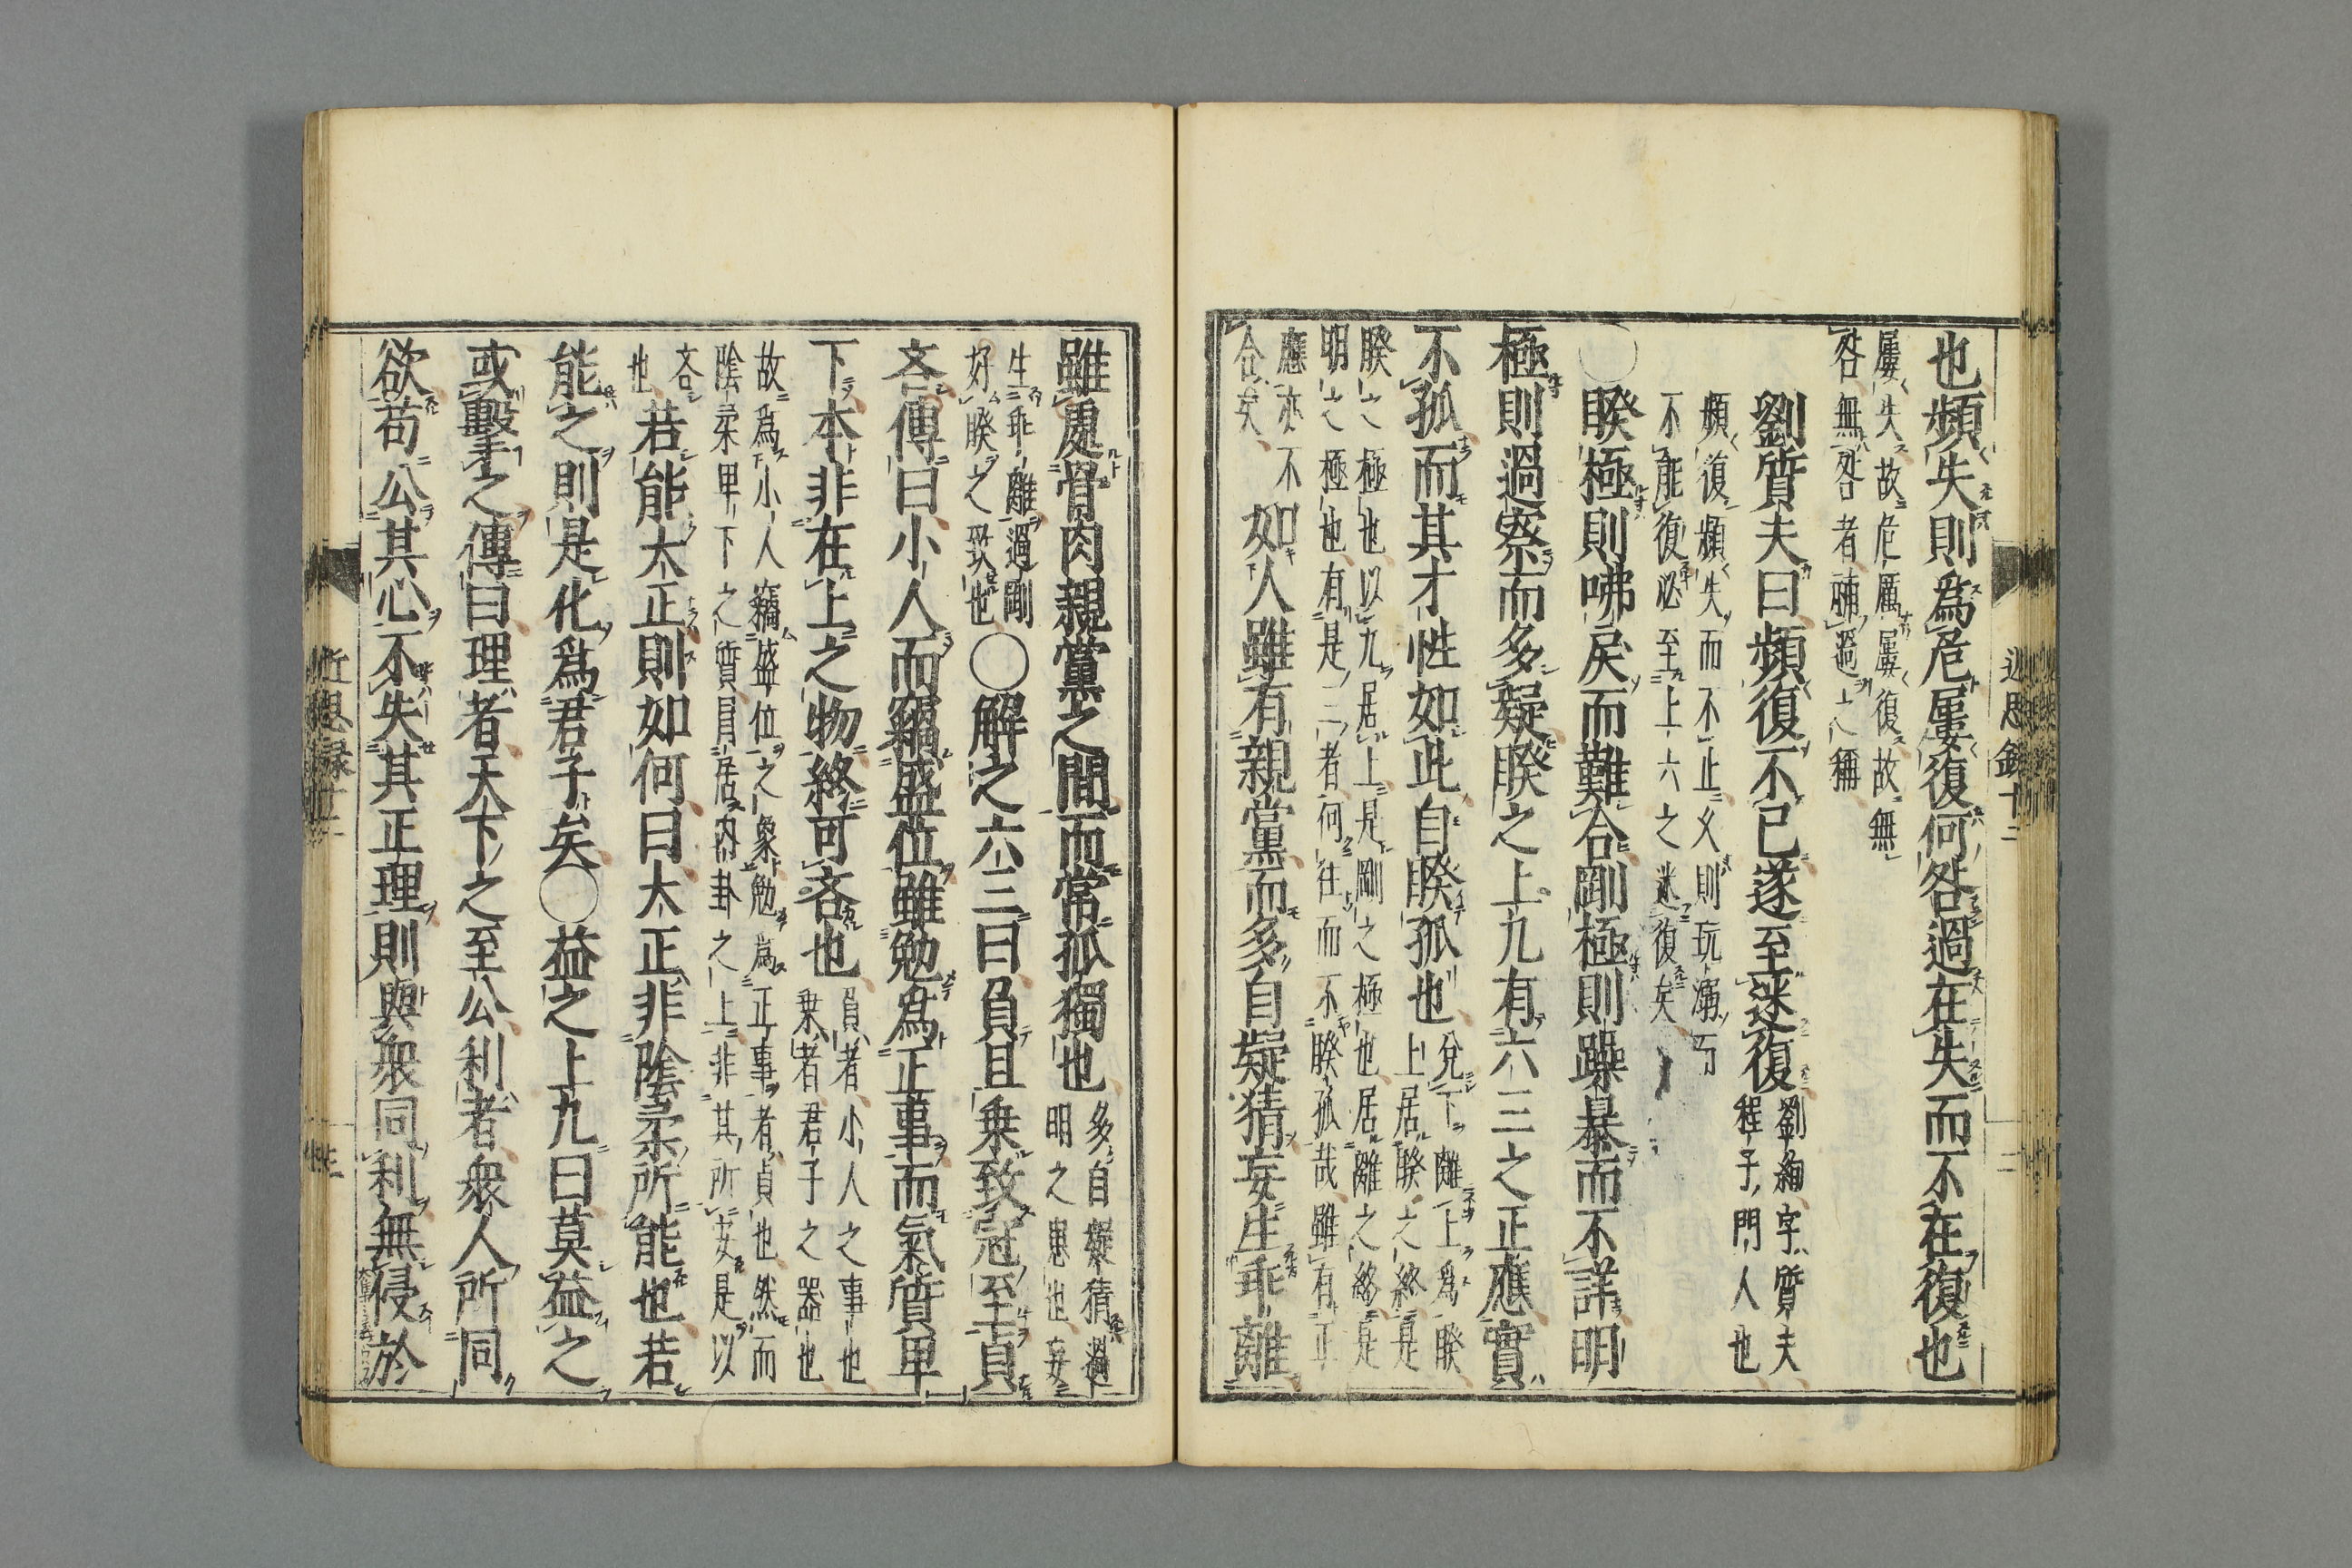 也頻失則爲危屢復何咎過在失而不在復也
屢失故危厲屢復故無
咎無咎者補過之稱
劉質夫曰頻復不已遂至迷復
劉絢字質夫
程子門人也
頻復頻失而不止久則玩溺而
不能復必至上六之迷復矣
○睽極則咈戾而難合剛極則躁暴而不詳明
極則過察而多疑睽之上九有六三之正應實
不孤而其才性如此自睽孤也
兌下離上爲睽
上居睽之終是
睽之極也以九居上是剛之極也居離之終是
明之極也有是三者何往而不睽孤哉雖有正
應亦不
合矣
如人雖有親黨而多自疑猜妄生乖離
近思録十二
二
雖處骨肉親黨之間而常孤獨也
多自疑猜過
明之患也妄
生乖離過剛
好睽之致也
○解之六三曰負且乗致冦至貞
吝傳曰小人而竊盛位雖勉爲正事而氣質卑
下本非在上之物終可吝也
負者小人之事也
乗者君子之器也
故爲小人竊盛位之象勉爲正事者貞也然而
陰柔卑下之質冐居内卦之上非其所安是以
吝
也
若能大正則如何曰大正非陰柔所能也若
能之則是化爲君子矣○益之上九曰莫益之
或擊之傳曰理者天下之至公利者衆人所同
欲苟公其心不失其正理則與衆同利無侵於
近思録十二